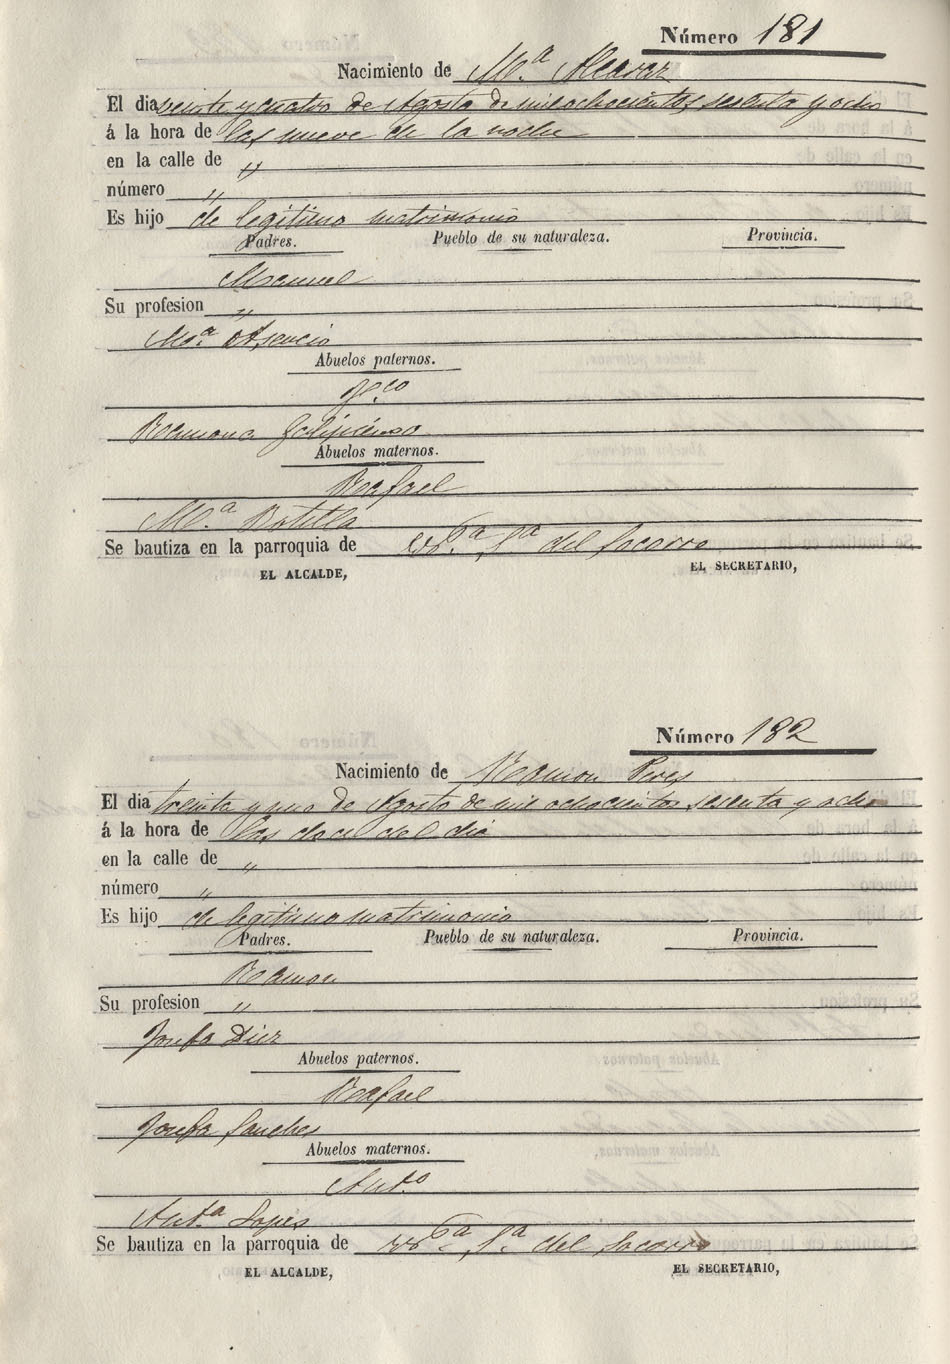 Número 181
Nacimiento de Mª Alcaraz
El dia veinte y cuatro de Agosto de mil ochocientos sesenta y ocho
á la hora de las nueve de la noche
en la calle de "
número "
Es hijo de legitimo matrimonio
Padres. Pueblo de su naturaleza. Provincia.
Manuel
Su profesion "
Mª Asencio
Abuelos paternos.
Fco
Ramona
Abuelos maternos.
Rafael
Mª Botella
Se bautiza en la parroquia de Sª del Socorro
EL ALCALDE, EL SECRETARIO,
Número 182
Nacimiento de Ramon Peres
El dia treinta y uno de Agosto de mil ochocientos sesenta y ocho
á la hora de las doce del dia
en la calle de "
número "
Es hijo de legitimo matrimonio
Padres. Pueblo de su naturaleza. Provincia.
Ramon
Su profesion "
Josefa Diez
Abuelos paternos.
Rafael
Josefa Sanches
Abuelos maternos.
Antº
Antª Lopes
Se bautiza en la parroquia de Sª del Socorro
EL ALCALDE, EL SECRETARIO,